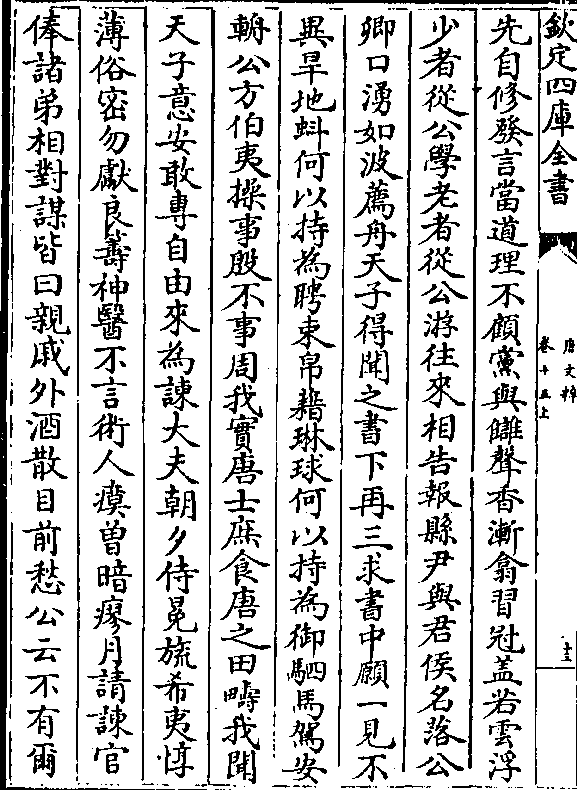 欽定四庫全書
唐文粹
卷十五上
十三
先自修發言當道理不顧黨與讎聲香漸翕習冠蓋若雲浮
少者從公學老者從公游往來相告報縣尹與君侯名落公
卿口湧如波薦舟天子得聞之書下再三求書中願一見不
異旱地蚪何以持為聘束帛藉琳球何以持為御駟馬駕安
輈公方伯夷操事殷不事周我實唐士庶食唐之田疇我聞
天子意安敢專自由來為諫大夫朝夕侍冕旒希夷惇
薄俗密勿獻良籌神醫不言術人瘼曾暗瘳月請諫官
俸諸弟相對謀皆曰親戚外酒散目前愁公云不有爾